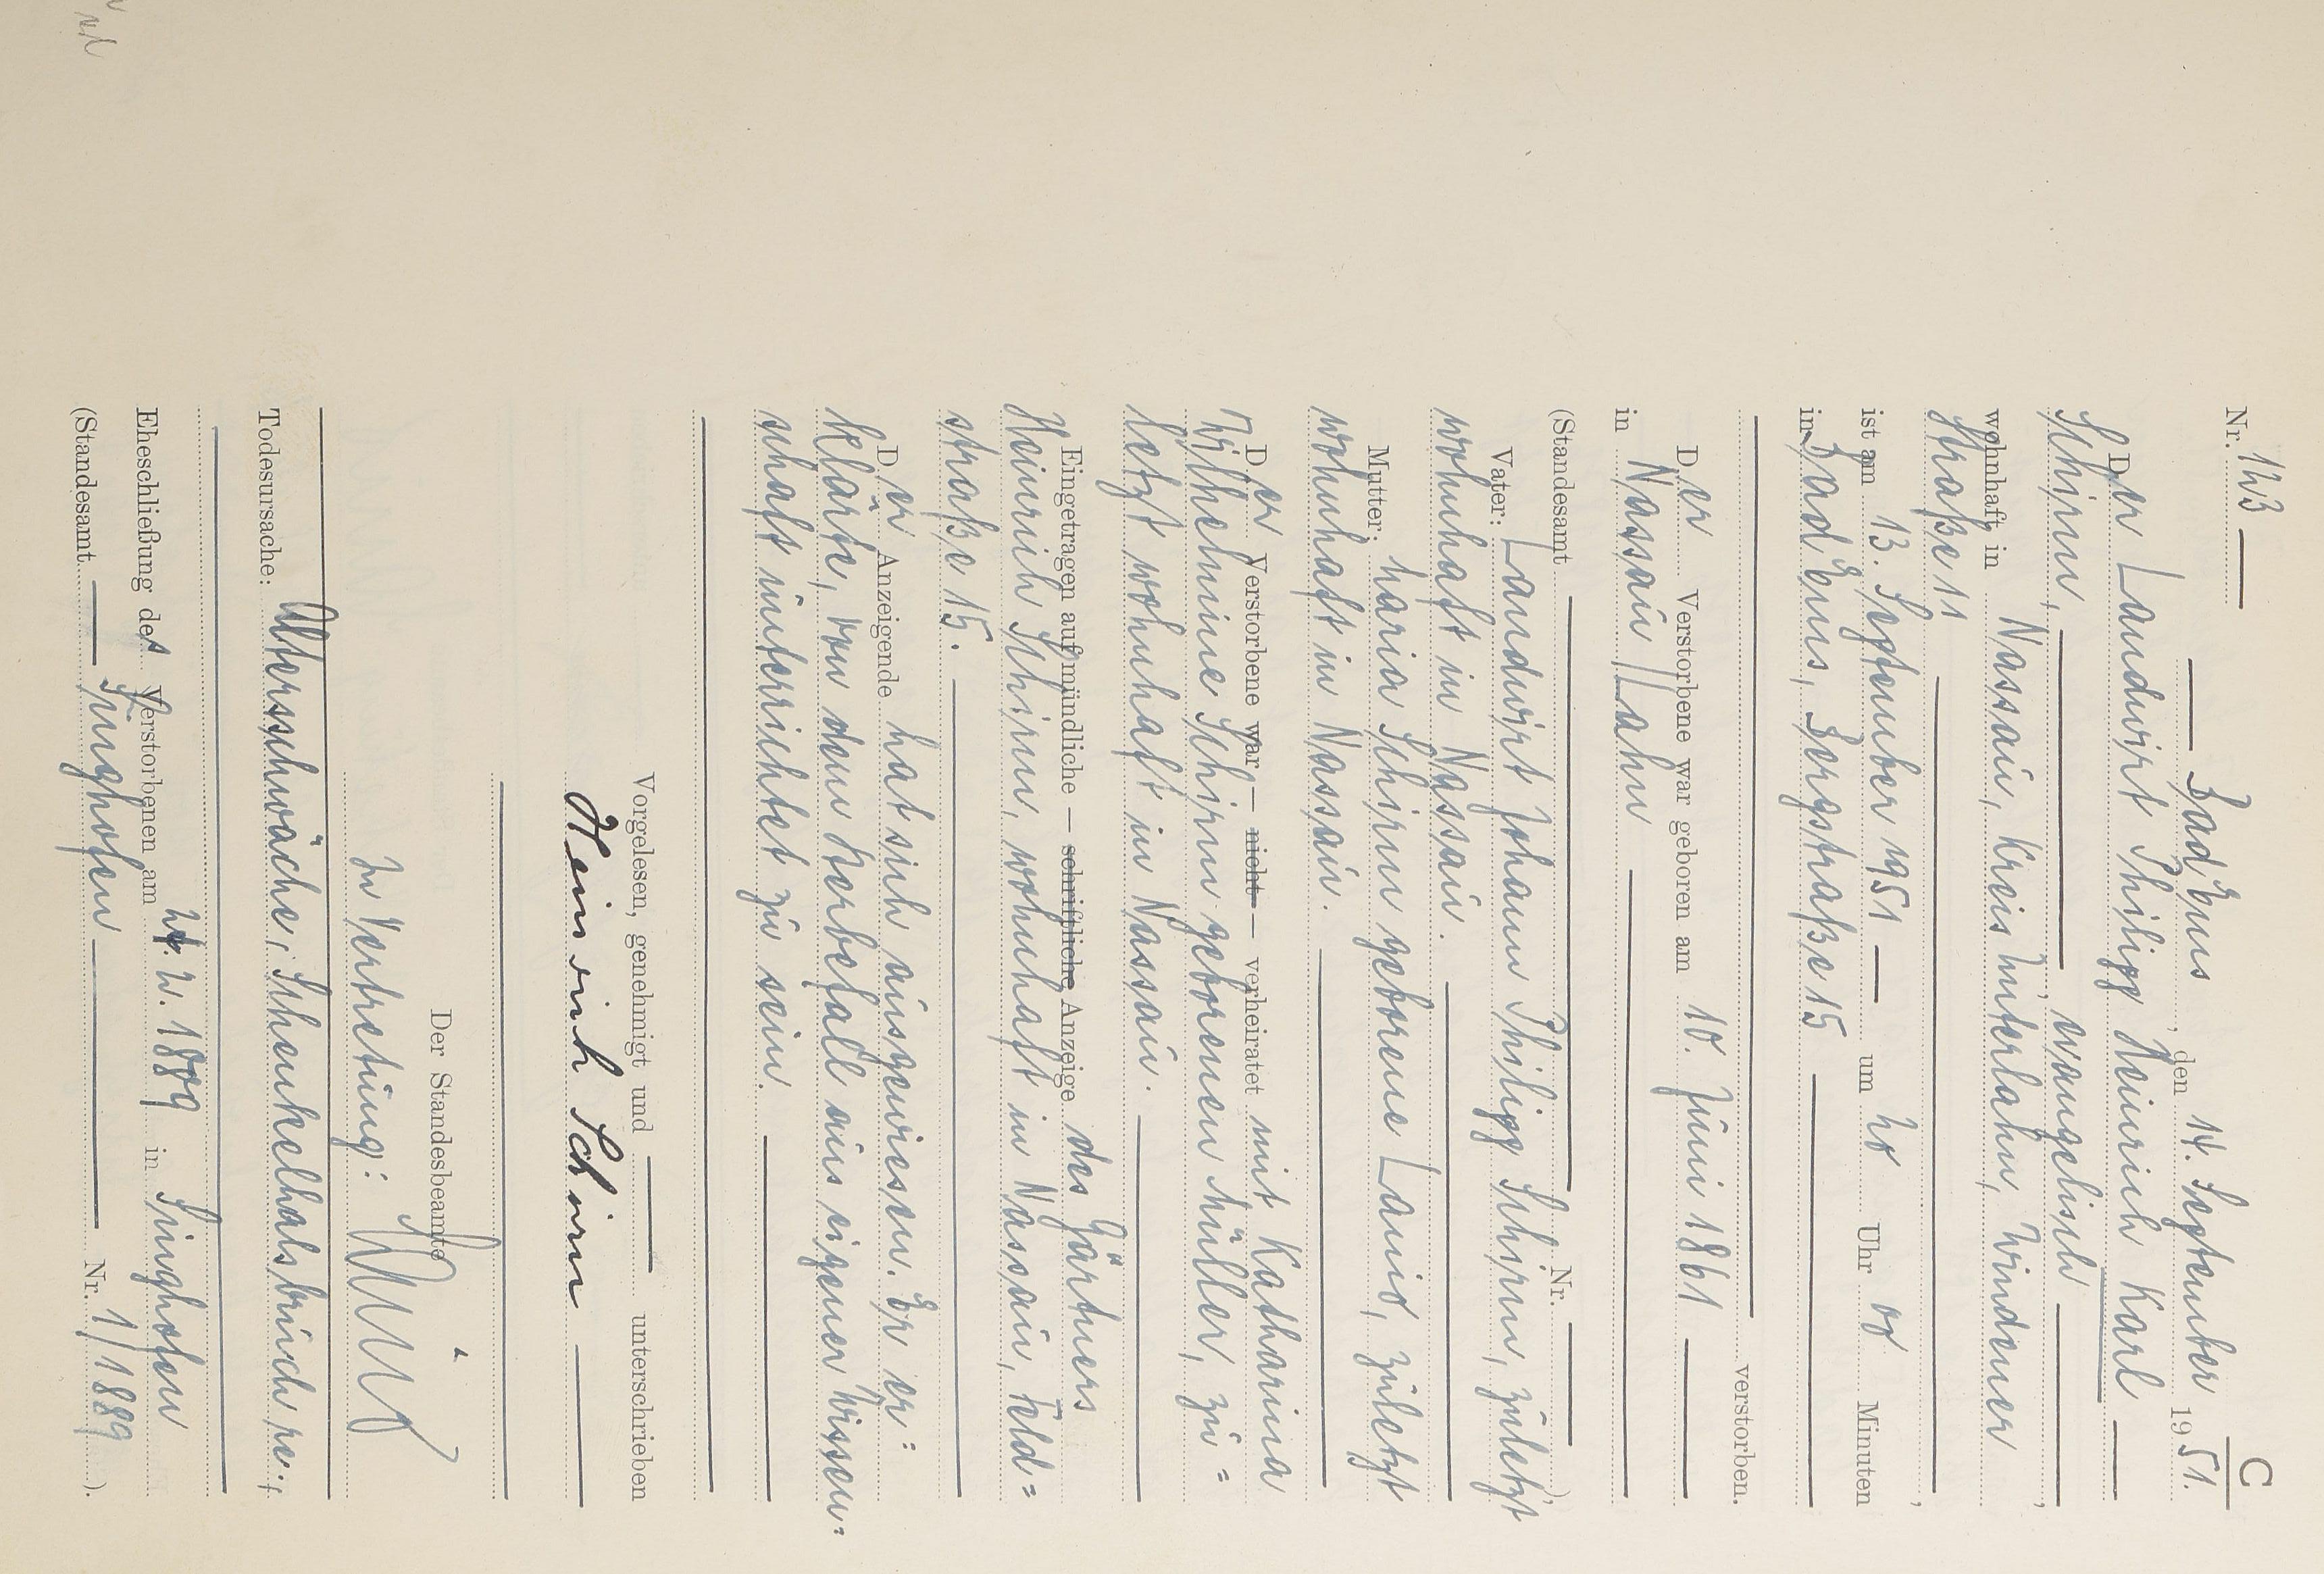 C
Nr. 123
Bad Ems, den 14. September 1951.
Der Landwirt Philipp Heinrich Karl
Schirm, evangelisch,
wohnhaft in Nassau, Kreis Unterlahn, Windener
Straße 11,
ist am 13. September 1951 um 20 Uhr 00 Minuten
in Bad Ems, Bergstraße 15
verstorben.
Der Verstorbene war geboren am 10. Juni 1861
in Nassau/Lahn
(Standesamt Nr. ),
Vater: Landwirt Johann Philipp Schirm, zuletzt
wohnhaft in Nassau.
Mutter: Maria Schirm geborene Lanio, zuletzt
wohnhaft in Nassau.
Der Verstorbene war — nicht — verheiratet mit Katharina
Wilhelmine Schirm geborenen Müller, zu=
letzt wohnhaft in Nassau.
Eingetragen auf mündliche — schriftliche Anzeige des Gärtners
Heinrich Schirm, wohnhaft in Nassau, Feld=
straße 15.
Der Anzeigende hat sich ausgewiesen. Er er=
klärte, von dem Sterbefall aus eigener Wissen=
schaft unterrichtet zu sein.
Vorgelesen, genehmigt und unterschrieben
Heinrich Schirm
Der Standesbeamte
In Vertretung:
Todesursache: Altersschwäche, Schenkelhalsbruch re.,
Eheschließung des Verstorbenen am 1889 in Singhofen
(Standesamt Singhofen Nr. 1/1889 ).